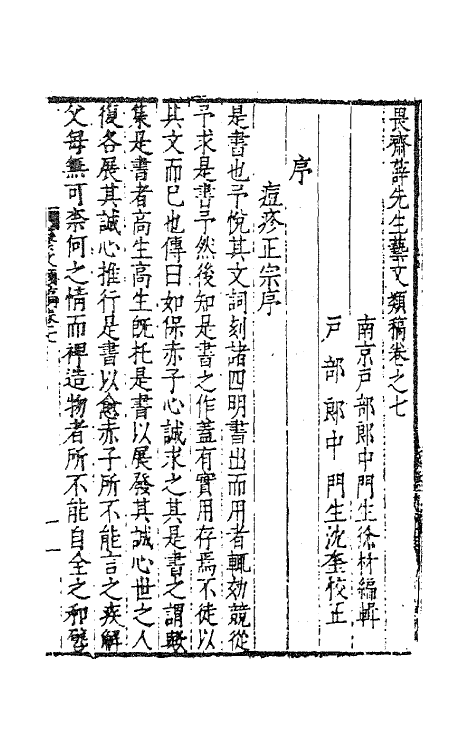 畏齋薛先生藝文類稿卷之七
南京戶部郎中門生徐材編輯
戶部郎中門生沈奎校正
序
痘疹正宗序
是書也予悅其文詞刻諸四明書出而用者輒効競從
予求是書予然後知是書之作蓋有實用存焉不徒以
其文而已也傳曰如保赤子心誠求之其是書之謂歟
集是書者高生高生旣托是書以展發其誠心世之人
復各展其誠心推行是書以愈赤子所不能言之疾解
父母無可柰何之情而裨造物者所不能自全之和